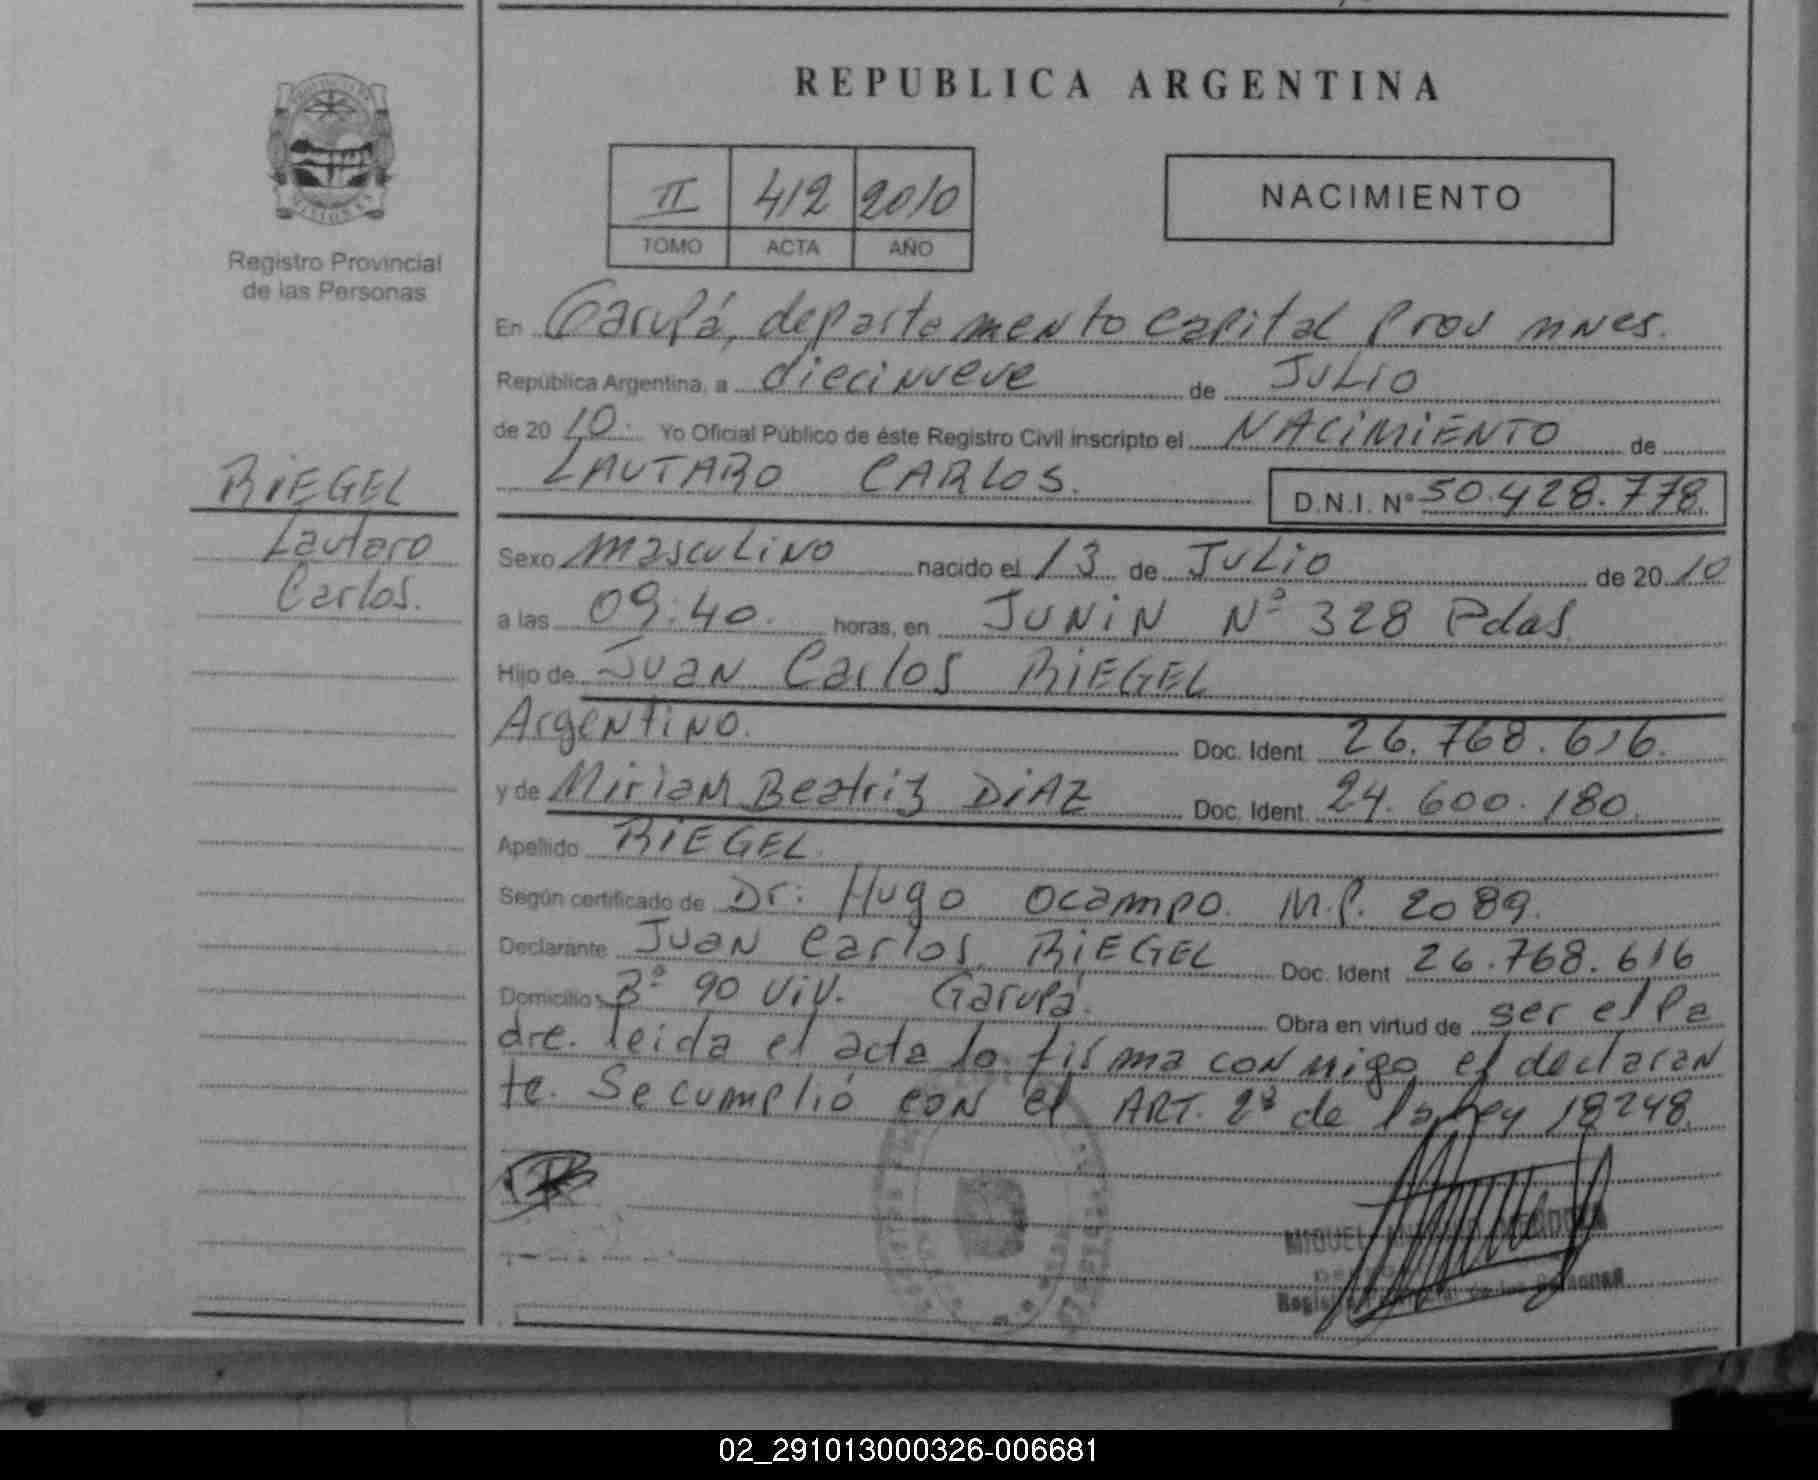 REPUBLICA ARGENTINA
II 412 2010
TOMO ACTA AÑO
NACIMIENTO
Registro Provincial
de las Personas
RIEGEL
Lautaro
Carlos.
En Garupá, departamento Capital Prov mnes.
República Argentina, a diecinueve de JULIO
de 20 10. Yo Oficial Público de éste Registro Civil inscripto el NACIMIENTO de
LAUTARO CARLOS. D.N.I. Nº 50.428.778.
Sexo masculino nacido el 13 de JULIO de 20 10
a las 09:40. horas, en JUNIN Nº 328 Pdas.
Hijo de Juan Carlos RIEGEL
Argentino. Doc. Ident. 26.768.616.
y de Miriam Beatriz DIAZ Doc. Ident. 24.600.180.
Apellido RIEGEL.
Según certificado de Dr: Hugo Ocampo. M.P. 2089.
Declarante Juan Carlos RIEGEL Doc. Ident 26.768.616
Domicilio Bº 90 viv. Garupá. Obra en virtud de ser el Pa
dre. leida el acta la firma conmigo el declaran
te. Se cumplió con el ART. 2º de la ley 18248.
MIGUEL
02_291013000326-006681